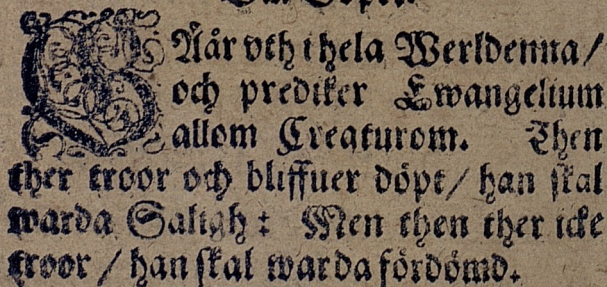 GÅår vth i hela Werldenna/
och prediker Ewangelium
allom Creaturom. Then
ther troor och bliffuer döpt/ han skal
warda Saligh: Men then ther icke
troor / han skal warda fördömd.